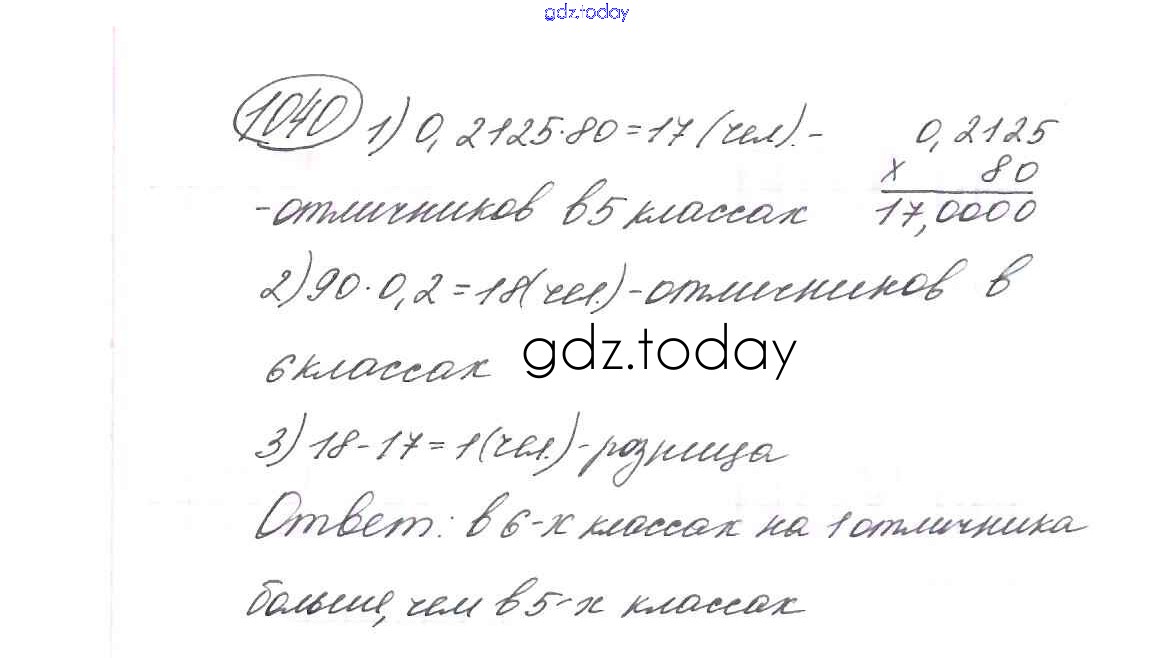 gdz.today
1040 1) 0,2125·80=17 (чел).-
0,2125
х 80
17,0000
-отличников в 5 классах
2) 90·0,2=18(чел.)-отличников в
6 классах
gdz.today
3) 18-17=1(чел.)-розница
Ответ: в 6-х классах на 1 отличника
больше, чем в 5-х классах